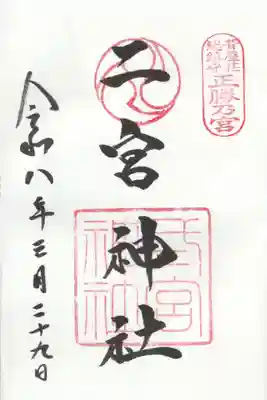 正勝乃宮
二宮神社
二宮神社
令和八年三月二十九日